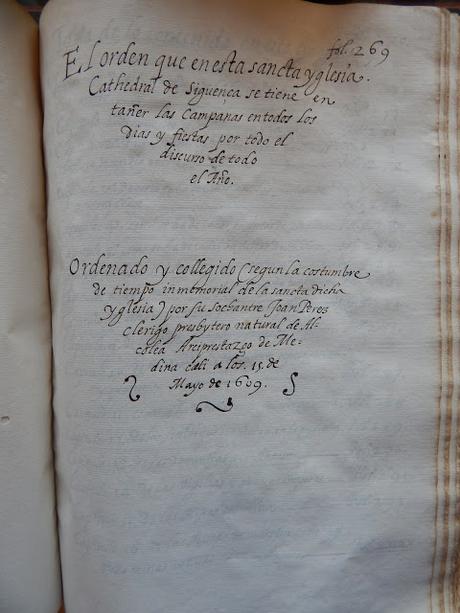 fol. 269
El orden que en esta sancta yglesia.
Cathedral de Siguenca se tiene en
tañer las Campanas en todos los
Dias y fiestas por todo el
discurso de todo
el Año.
Ordenado y collegido (segun la costumbre
de tiempo inmemorial de la sancta dicha
yglesia) por su Sochantre Joan Perez
Clerigo presbytero natural de Al-
colea Areiprestazgo de Me-
dina celi a los. 15. de
Mayo de 1609.